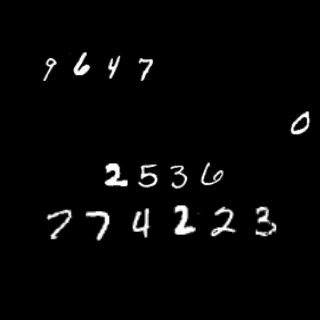 9647
0
2536
774223